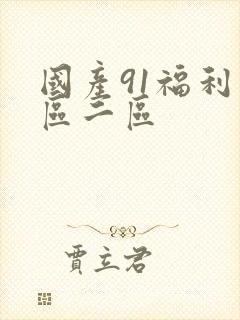 國產91福利
區二區
賈立君